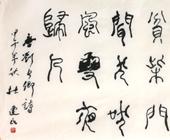 貧柴門
聞犬吠
風雪夜
歸人
唐劉長卿詩
甲午年秋杜